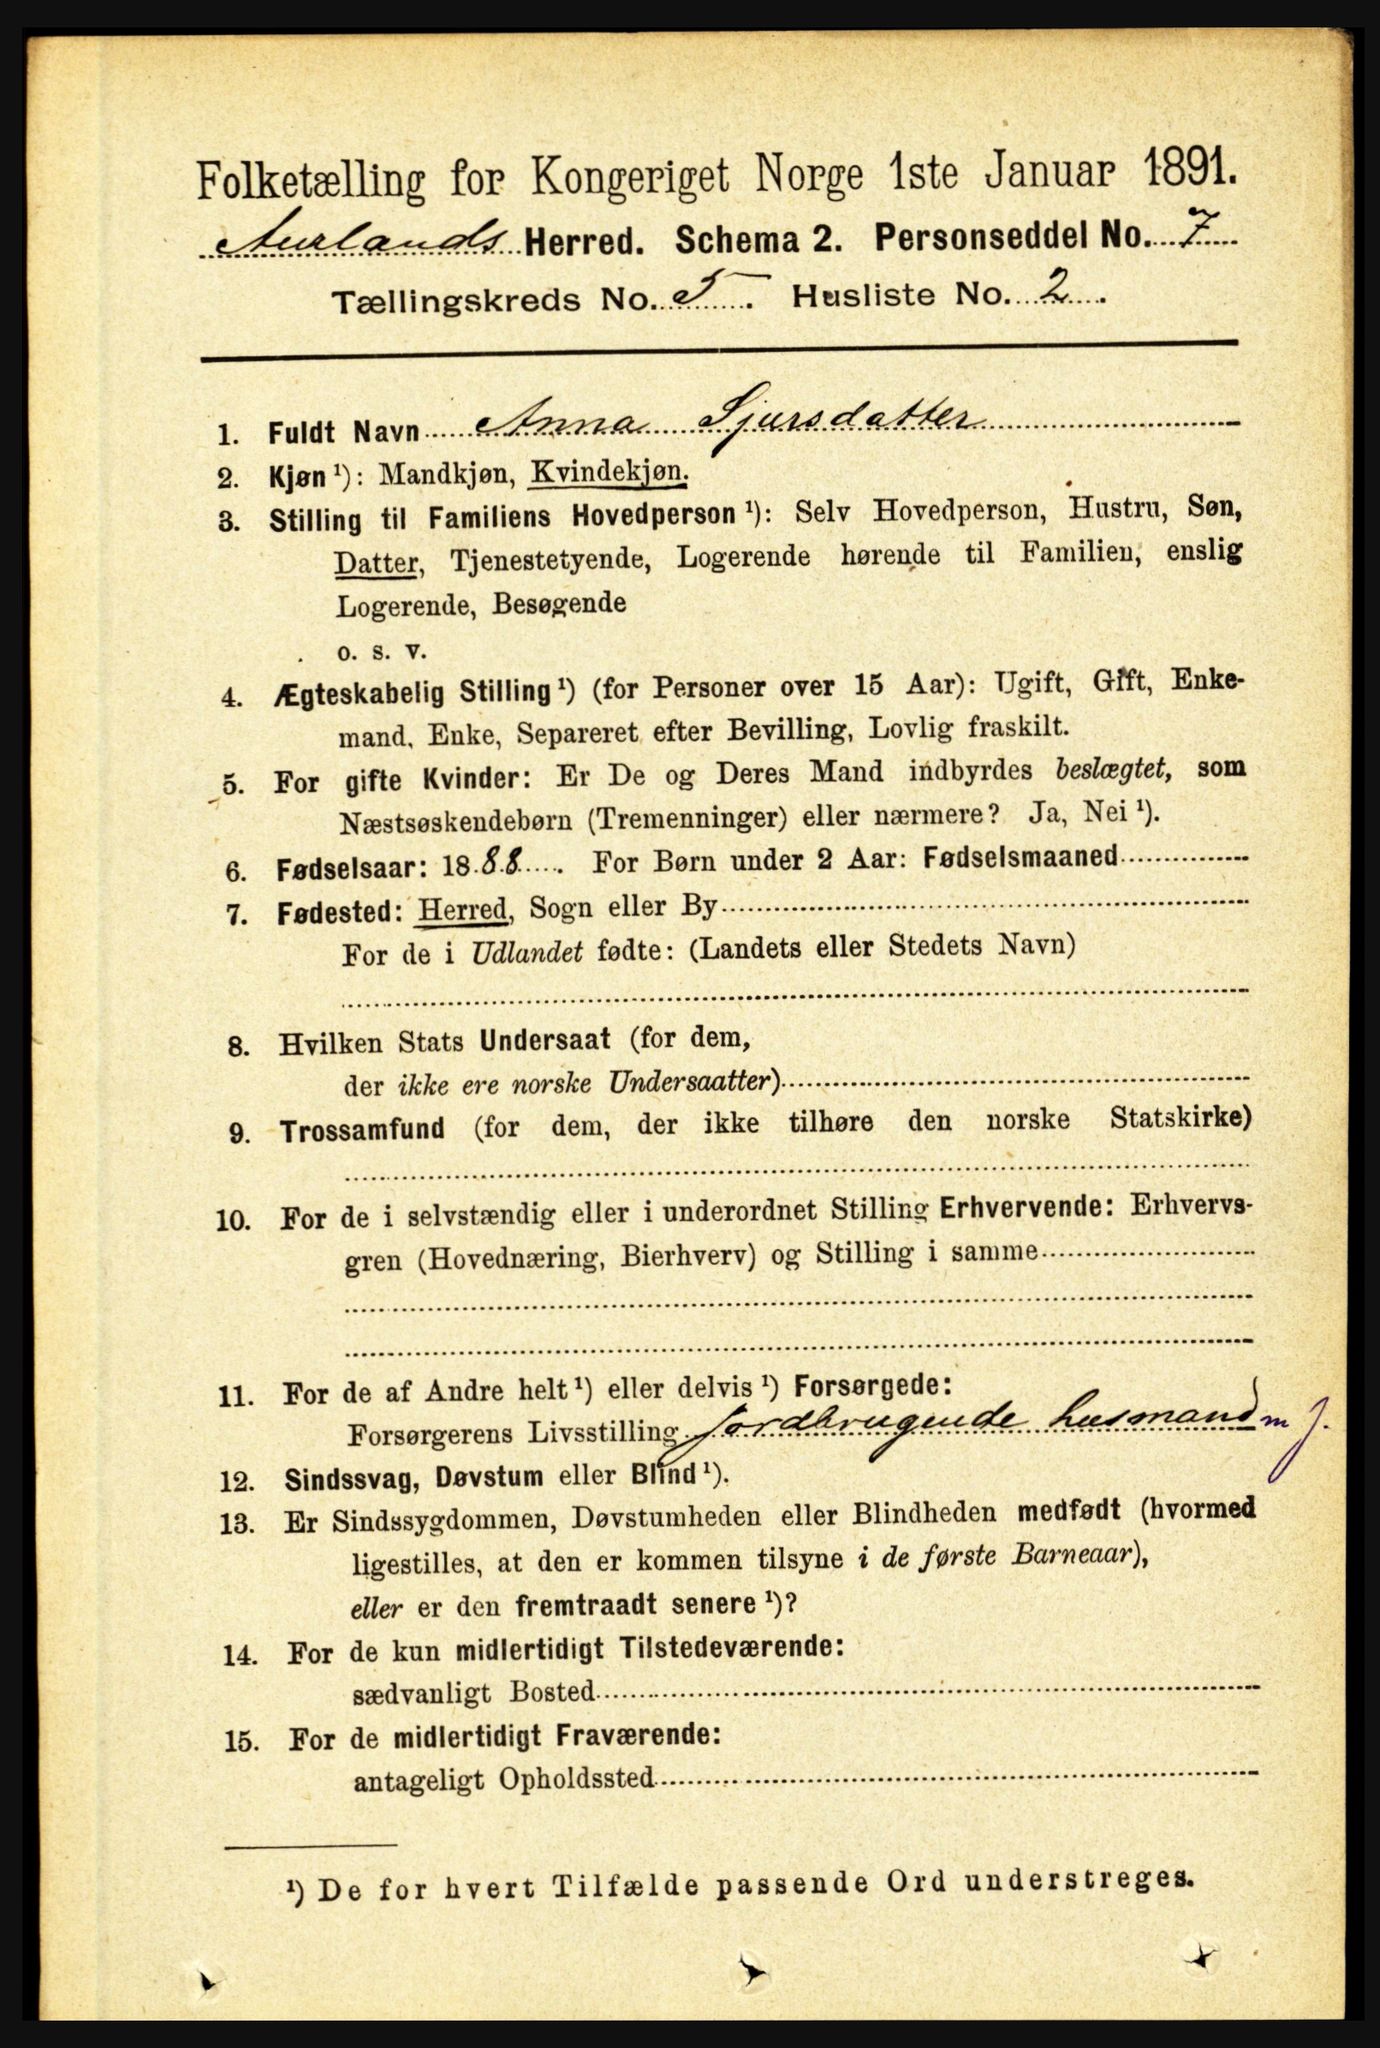 Folketælling for Kongeriget Norge 1ste Januar 1891.
Aurlands Herred. Schema 2. Personseddel No. 7
Tællingskreds No. 5. Husliste No. 2.
1. Fuldt Navn Anna Sjursdatter
2. Kjøn ¹): Mandkjøn, Kvindekjøn.
3. Stilling til Familiens Hovedperson ¹): Selv Hovedperson, Hustru, Søn,
Datter, Tjenestetyende, Logerende hørende til Familien, enslig
Logerende, Besøgende
o. s. v.
4. Ægteskabelig Stilling ¹) (for Personer over 15 Aar): Ugift, Gift, Enke-
mand, Enke, Separeret efter Bevilling, Lovlig fraskilt.
5. For gifte Kvinder: Er De og Deres Mand indbyrdes beslægtet, som
Næstsøskendebørn (Tremenninger) eller nærmere? Ja, Nei ¹).
6. Fødselsaar: 1888. For Børn under 2 Aar: Fødselsmaaned
7. Fødested: Herred, Sogn eller By
For de i Udlandet fødte: (Landets eller Stedets Navn)
8. Hvilken Stats Undersaat (for dem,
der ikke ere norske Undersaatter)
9. Trossamfund (for dem, der ikke tilhøre den norske Statskirke)
10. For de i selvstændig eller i underordnet Stilling Erhvervende: Erhvervs-
gren (Hovednæring, Bierhverv) og Stilling i samme
11. For de af Andre helt ¹) eller delvis ¹) Forsørgede:
Forsørgerens Livsstilling jordbrugende husmand m j.
12. Sindssvag, Døvstum eller Blind ¹).
13. Er Sindssygdommen, Døvstumheden eller Blindheden medfødt (hvormed
ligestilles, at den er kommen tilsyne i de første Barneaar),
eller er den fremtraadt senere ¹)?
14. For de kun midlertidigt Tilstedeværende:
sædvanligt Bosted
15. For de midlertidigt Fraværende:
antageligt Opholdssted
¹) De for hvert Tilfælde passende Ord understreges.